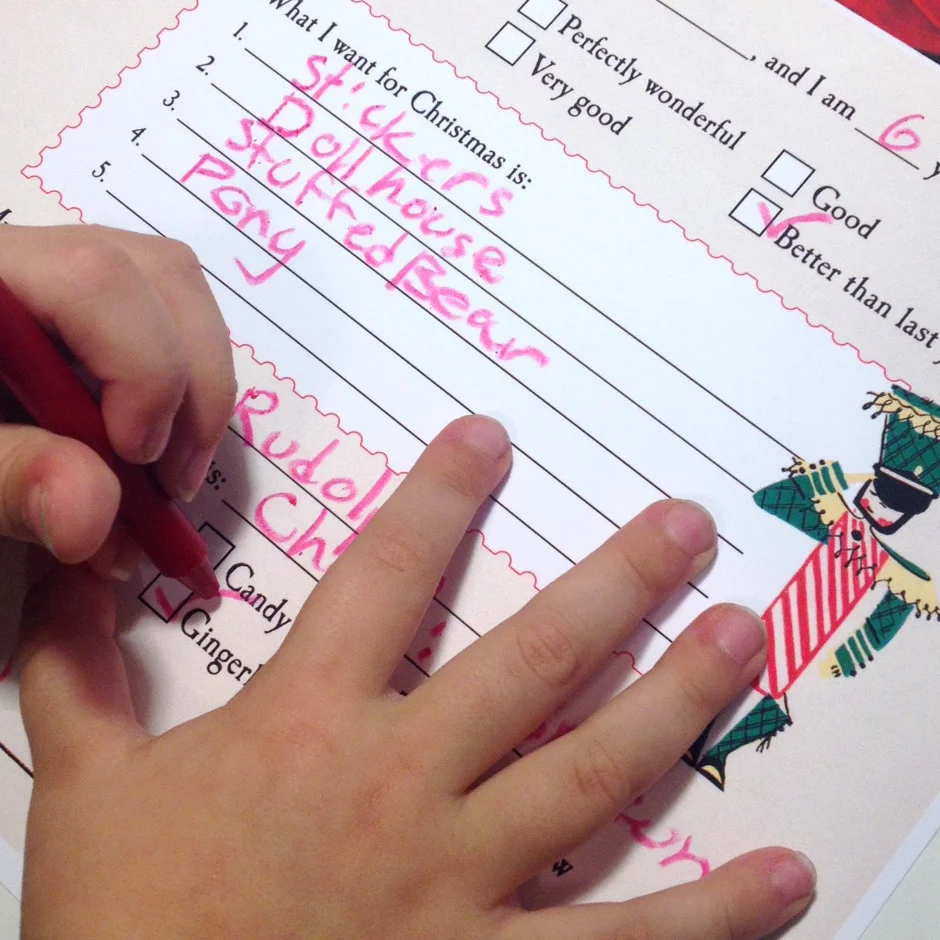 , and I am 6 y
Perfectly wonderful
Very good
Good
Better than last
What I want for Christmas is:
1. Stickers
2. Dollhouse
3. stuffed Bear
4. Pony
5.
Rudol
is: Ch
Candy
Ginger
w